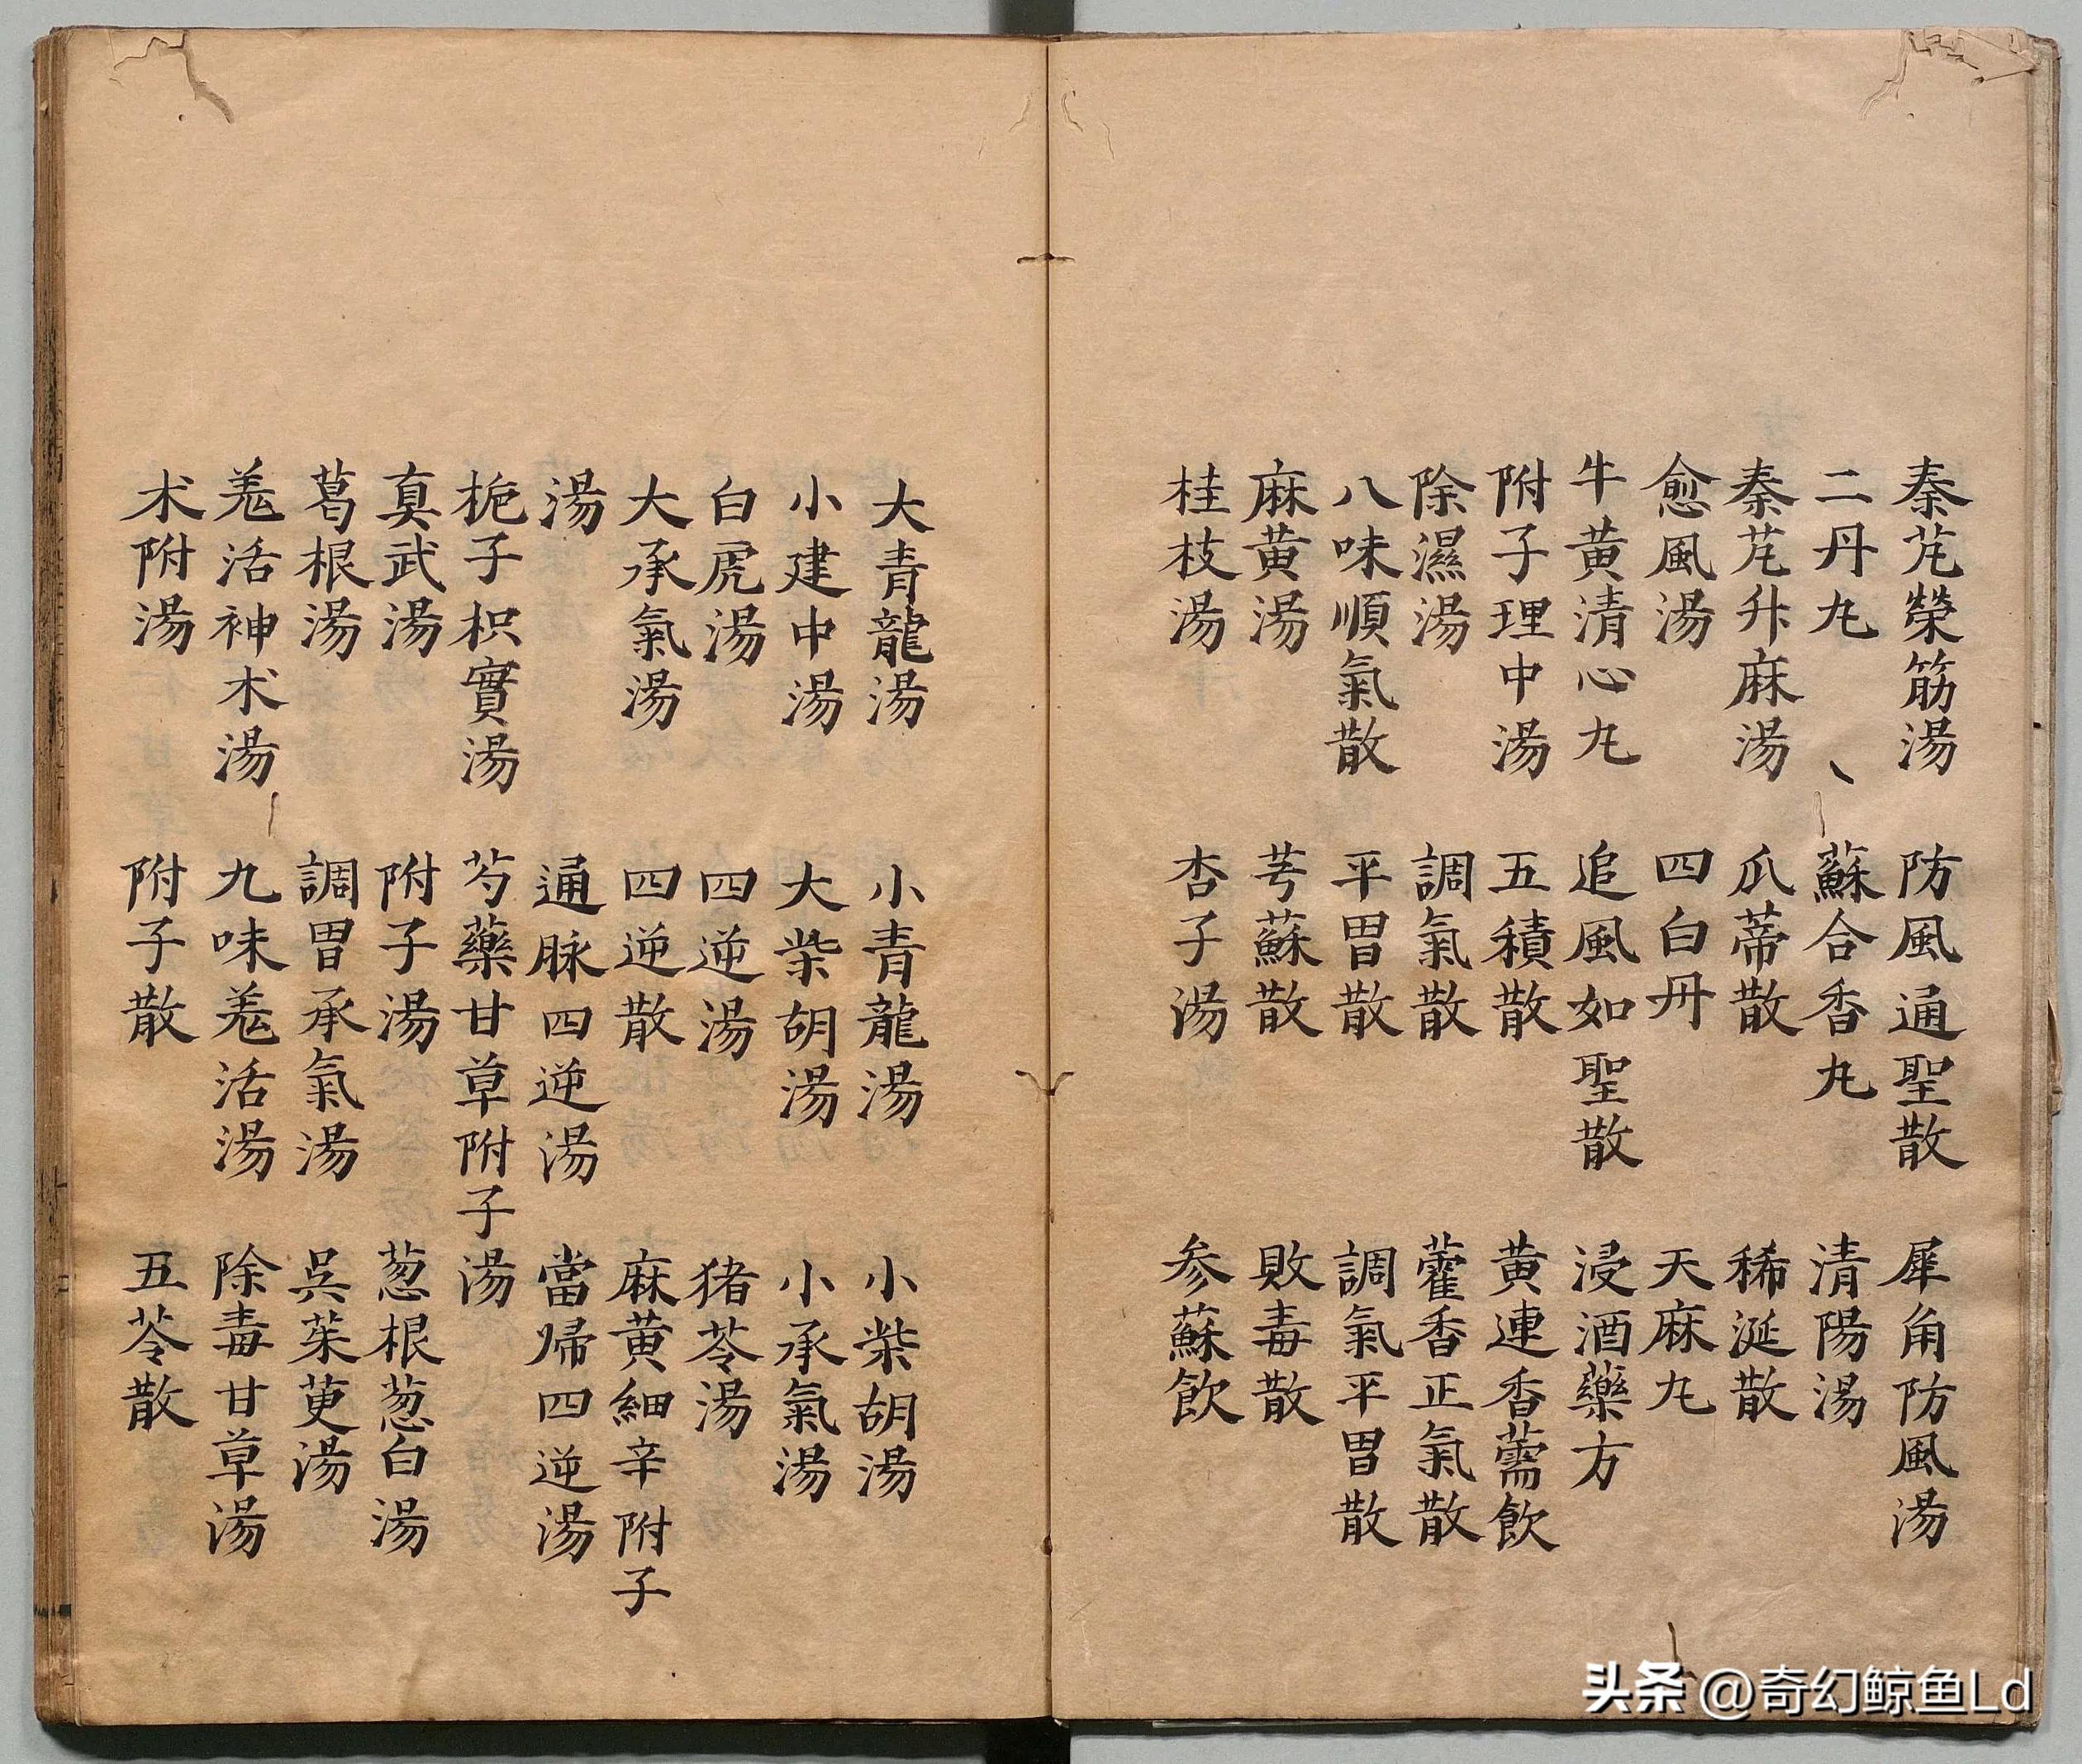 秦芃榮筋湯 防風通聖散 犀角防風湯
二丹丸 蘇合香丸 清陽湯
秦芃升麻湯 瓜蒂散 稀涎散
愈風湯 四白丹 天麻丸
牛黄清心丸 追風如聖散 浸酒藥方
附子理中湯 五積散 黄連香薷飲
除濕湯 調氣散 藿香正氣散
八味順氣散 平胃散 調氣平胃散
麻黄湯 芎蘇散 敗毒散
桂枝湯 杏子湯 参蘇飲
大青龍湯 小青龍湯 小柴胡湯
小建中湯 大柴胡湯 小承氣湯
白虎湯 四逆湯 猪苓湯
大承氣湯 四逆散 麻黄細辛附子
湯 通脉四逆湯 當歸四逆湯
梔子枳實湯 芍藥甘草附子湯
真武湯 附子湯 葱根葱白湯
葛根湯 調胃承氣湯 吳茱萸湯
羌活神术湯 九味羌活湯 除毒甘草湯
术附湯 附子散 五苓散
头条 @奇幻鲸鱼Ld